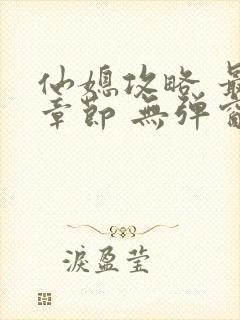 仙媳攻略 最
章節 無彈窗
淚盈莹